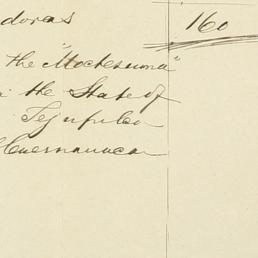 doras 160
the "Moctesuma"
the State of
Tejupilco
Cuernavaca